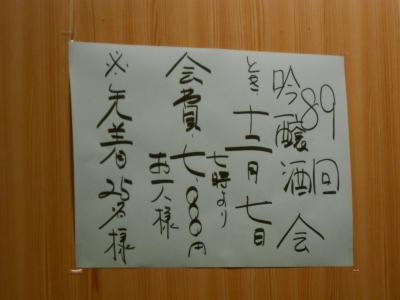 89回
吟醸酒会
とき 十二月七日
七時より
会費 七、000円
お一人様
※先着25名様